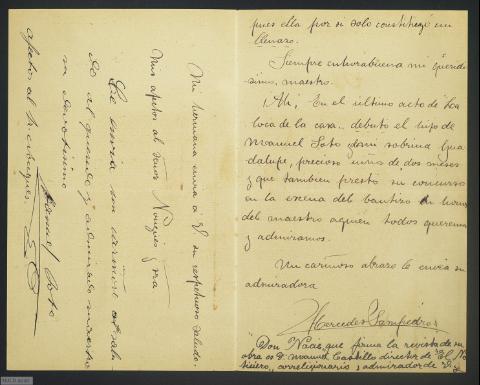 pues ella por si solo constituye un
llenazo.
Siempre enhorabuena mi queridi
simo, maestro.
¡Ah! En el ultimo acto de La
loca de la casa.. debutó el hijo de
Manuel Soto y mi sobrina Gua
dalupe, preciosa niña de dos meses
y que tambien prestó su concurso
en la escena del bautizo en honor
del maestro a quien todos queremos
y admiramos.
Un cariñoso abrazo le envia su
admiradora
Mercedes Sampedro
"Don Nadie" que firma la revista de su
obra es D. Manuel Castillo director de "El No
ticiero, correligionario y admirador de V.
Mi hermana envia á V. su respetuoso saludo
Mis afetos al Señor Nougues y sra
Le envia un cariñoso saludo
al querido y admirado maestro
su devotissimo
Manuel Soto
afetos al Sr